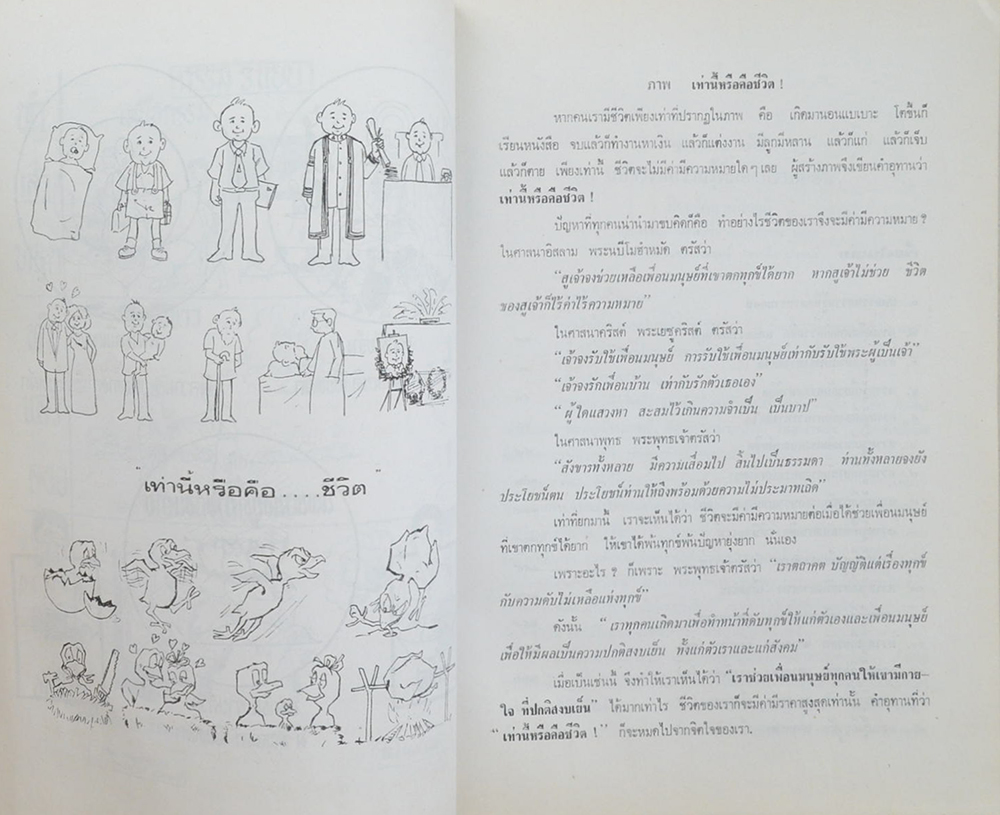 "เท่านี้หรือคือ.....ชีวิต"
ภาพ เท่านี้หรือคือชีวิต !
หากคนเรามีชีวิตเพียงเท่าที่ปรากฏในภาพ คือ เกิดมานอนแบเบาะ โตขึ้นก็
เรียนหนังสือ จบแล้วก็ทำงานหาเงิน แล้วก็แต่งงาน มีลูกมีหลาน แล้วก็แก่ แล้วก็เจ็บ
แล้วก็ตาย เพียงเท่านี้ ชีวิตจะไม่มีค่ามีความหมายใดๆ เลย ผู้สร้างภาพจึงเขียนคำอุทานว่า
เท่านี้หรือคือชีวิต !
ปัญหาที่ทุกคนน่านำมาขบคิดก็คือ ทำอย่างไรชีวิตของเราจึงจะมีค่ามีความหมาย ?
ในศาสนาอิสลาม พระนบีโมฮำหมัด ตรัสว่า
"สูเจ้าจงช่วยเหลือเพื่อนมนุษย์ที่เขาตกทุกข์ได้ยาก หากสูเจ้าไม่ช่วย ชีวิต
ของสูเจ้าก็ไร้ค่าไร้ความหมาย"
ในศาสนาคริสต์ พระเยซูคริสต์ ตรัสว่า
"เจ้าจงรับใช้เพื่อนมนุษย์ การรับใช้เพื่อนมนุษย์เท่ากับรับใช้พระผู้เป็นเจ้า"
"เจ้าจงรักเพื่อนบ้าน เท่ากับรักตัวเธอเอง"
"ผู้ใดแสวงหา สะสมไว้เกินความจำเป็น เป็นบาป"
ในศาสนาพุทธ พระพุทธเจ้าตรัสว่า
"สังขารทั้งหลาย มีความเสื่อมไป สิ้นไปเป็นธรรมดา ท่านทั้งหลายจงยัง
ประโยชน์ตน ประโยชน์ท่านให้ถึงพร้อมด้วยความไม่ประมาทเถิด"
เท่าที่ยกมานี้ เราจะเห็นได้ว่า ชีวิตจะมีค่ามีความหมายต่อเมื่อได้ช่วยเพื่อนมนุษย์
ที่เขาตกทุกข์ได้ยาก ให้เขาได้พ้นทุกข์พ้นปัญหายุ่งยาก นั่นเอง
เพราะอะไร ? ก็เพราะ พระพุทธเจ้าตรัสว่า "เราตถาคต บัญญัติแต่เรื่องทุกข์
กับความดับไม่เหลือแห่งทุกข์"
ดังนั้น "เราทุกคนเกิดมาเพื่อทำหน้าที่ดับทุกข์ให้แก่ตัวเองและเพื่อนมนุษย์
เพื่อให้มีผลเป็นความปกติสงบเย็น ทั้งแก่ตัวเราและแก่สังคม"
เมื่อเป็นเช่นนี้ จึงทำให้เราเห็นได้ว่า "เราช่วยเพื่อนมนุษย์ทุกคนให้เขามีกาย-
ใจ ที่ปกติสงบเย็น" ได้มากเท่าไร ชีวิตของเราก็จะมีค่ามีราคาสูงสุดเท่านั้น คำอุทานที่ว่า
"เท่านี้หรือคือชีวิต !" ก็จะหมดไปจากจิตใจของเรา.